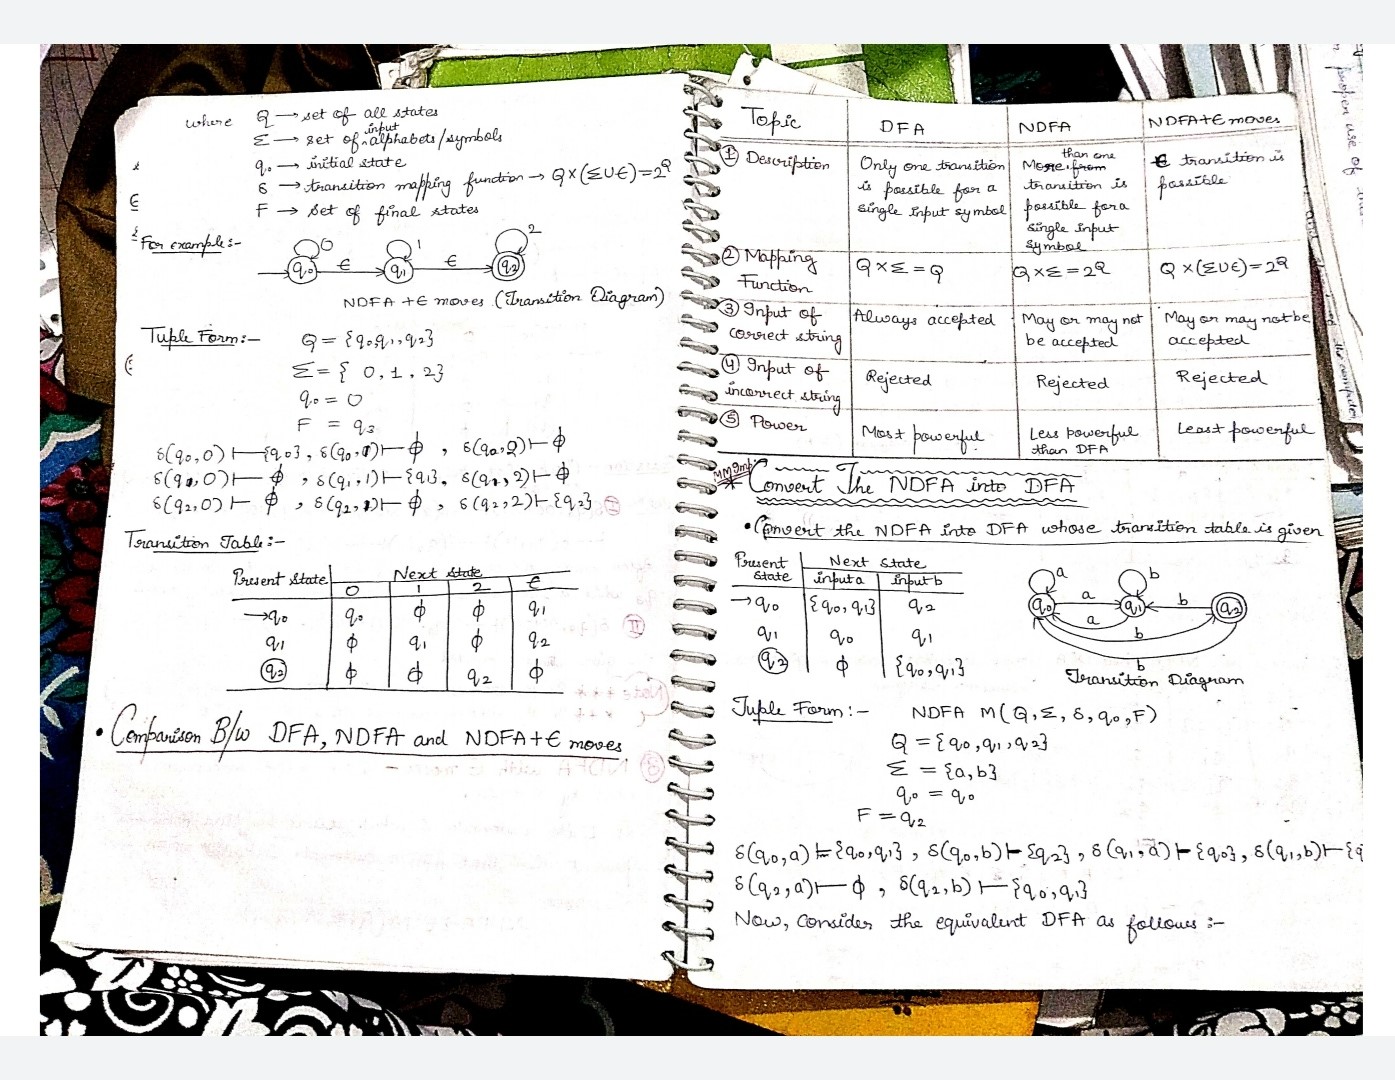 where Q → set of all states
Σ → set of input alphabets/symbols
q₀ → initial state
δ → transition mapping function → Q×(ΣU∈)=2^Q
F → set of final states
For example:-
0 1 2
q₀ ∈ q₁ ∈ q₂
NDFA +∈ moves (Transition Diagram)
Tuple Form:- Q = {q₀q₁,q₂}
Σ = { 0,1,2}
q₀ = 0
F = q₃
δ(q₀,0) ⊢{q₀}, δ(q₀,1)⊢ϕ , δ(q₀,2)⊢ϕ
δ(q₁,0)⊢ϕ , δ(q₁,1)⊢{q₁}, δ(q₁,2)⊢ϕ
δ(q₂,0)⊢ϕ , δ(q₂,1)⊢ϕ , δ(q₂,2)⊢{q₂}
Transition Table:-
Present state Next state
0 1 2 ∈
→q₀ q₀ ϕ ϕ q₁
q₁ ϕ q₁ ϕ q₂
q₂ ϕ ϕ q₂ ϕ
• Comparison B/w DFA, NDFA and NDFA+∈ moves
Topic DFA NDFA NDFA+∈ moves
① Description
Only one transition
is possible for a
single input symbol
than one
More from
transition is
possible for a
single input
symbol
∈ transition is
possible
② Mapping
Function
Q×Σ=Q
Q×Σ=2^Q
Q×(ΣU∈)=2^Q
③ Input of
correct string
Always accepted
May or may not
be accepted
May or may not be
accepted
④ Input of
incorrect string
Rejected
Rejected
Rejected
⑤ Power
Most powerful
Less powerful
than DFA
Least powerful
MM Imp
* Convert The NDFA into DFA
• Convert the NDFA into DFA whose transition table is given
Present
state
Next state
input a input b
→q₀ {q₀,q₁} q₂
q₁ q₀ q₁
q₂ ϕ {q₀,q₁}
a b
q₀ a q₁ b q₂
a
b
b
Transition Diagram
Tuple Form:- NDFA M(Q,Σ,δ,q₀,F)
Q = {q₀,q₁,q₂}
Σ = {a,b}
q₀ = q₀
F = q₂
δ(q₀,a)⊢{q₀,q₁} , δ(q₀,b)⊢{q₂} , δ(q₁,a)⊢{q₀}, δ(q₁,b)⊢{q
δ(q₂,a)⊢ϕ , δ(q₂,b)⊢{q₀,q₁}
Now, consider the equivalent DFA as follows:-